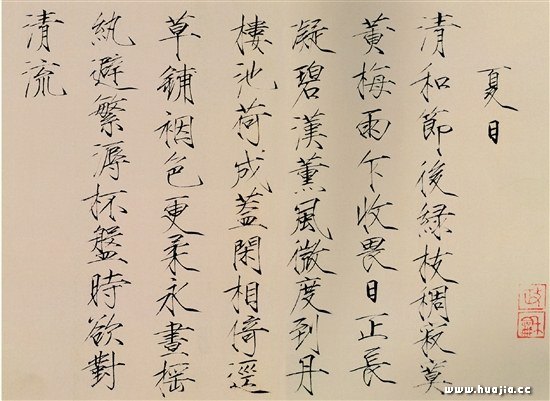 夏日
清和節後綠枝稠寂莫
黃梅雨乍收畏日正長
凝碧漢薰風微度到丹
樓池荷成蓋閑相倚逕
草鋪裀色更柔永晝搖
紈避繁溽杯盤時欲對
清流
政和
www.huajia.cc